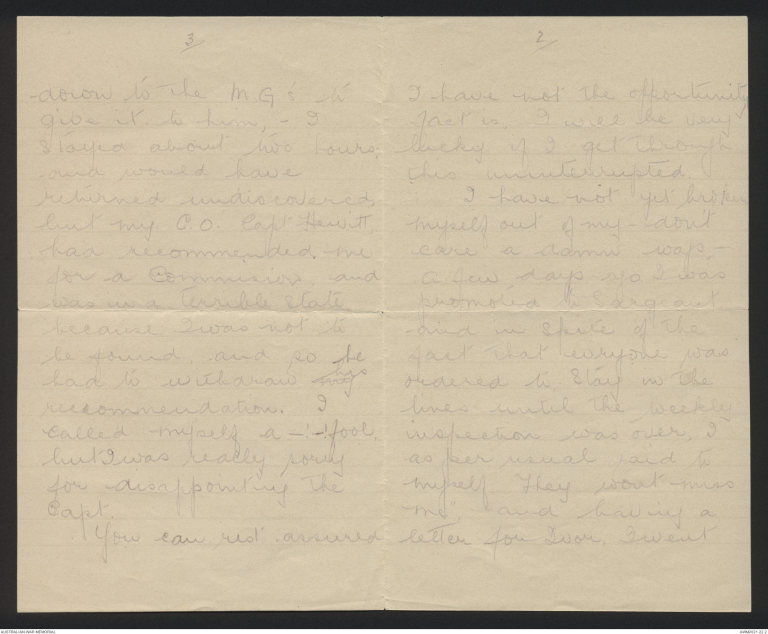 2/
I have not the opportunity
fact is. I will be very
lucky if I get through
this uninterrupted.
I have not yet broken
myself out of my "don't
care a damn ways, –
a few days ago I was
promoted to Sargeant
and in spite of the
fact that everyone was
ordered to stay in the
lines until the weekly
inspection was over, I
as per usual said to
myself "They wont miss
me", and having a
letter for Ivor, I went
3/
down to the M G's to
give it to him, – I
stayed about two hours,
and would have
returned undiscovered,
but my C.O. Capt Hewitt,
had recommended me
for a Commission, and
was in a terrible state
because I was not to
be found, and so he
had to withdraw my his
reccommendation. I
called myself a –!–! fool,
but I was really sorry
for disappointing the
Capt.
You can rest assured
AUSTRALIAN WAR MEMORIAL